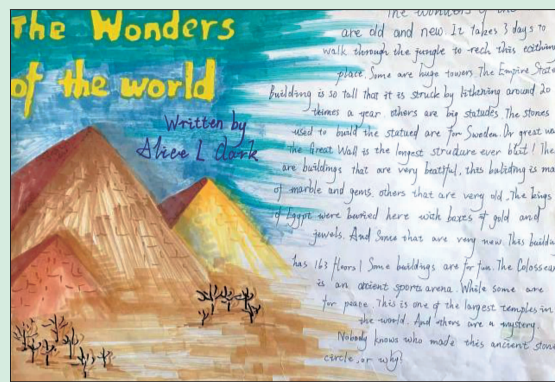 The Wonders
of the world
Written by
Alice L Clark
The wonders of the
are old and new. It takes 3 days to
walk through the jungle to rech this
place. Some are huge towers The Empire State
Building is so tall that it is struck by lithening around 20
times a year others are big statudes The stones
used to build the statued are for Sweden. Or great wa
the Great Wall is the longest strudure ever blut! The
are buildings that are very beatiful, this baliding is ma
of marble and gems, others that are very old. The kings
of Egypt were buried here with boxes of gold and
jewels. And Some that are very new. This buildi
has 163 floors! Some buildings are for fun. The Colosseu
is an ancient sports arena. While some are
for peace. This is one of the largest temples in
the world. And others are a mystery
Nobody knows who made this ancient stone
circle, or why?